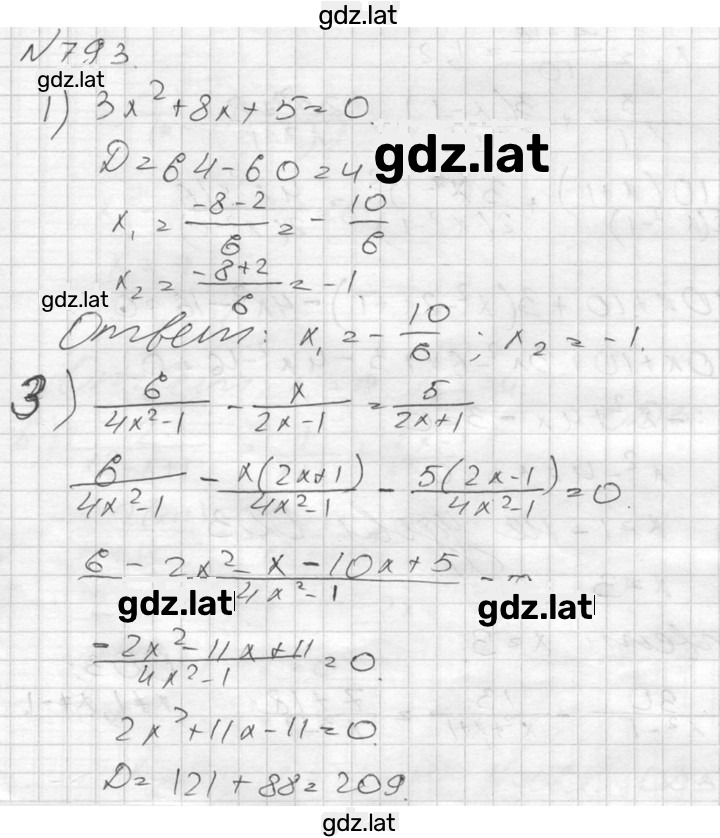 gdz.lat
N793.
gdz.lat
1) 3x²+8x+5=0.
D=64-60=4.
gdz.lat
x₁ = (-8-2)/6 = - 10/6
x₂ = (-8+2)/6 = -1
gdz.lat
Ответ: x₁ = - 10/6 ; x₂ = -1.
3) 6/(4x²-1) - x/(2x-1) = 5/(2x+1)
6/(4x²-1) - x(2x+1)/(4x²-1) - 5(2x-1)/(4x²-1) = 0.
(6 - 2x² - x - 10x + 5)/(4x²-1) =
gdz.lat
gdz.lat
(-2x²-11x+11)/(4x²-1) = 0.
2x²+11x-11=0.
D= 121+88=209.
gdz.lat